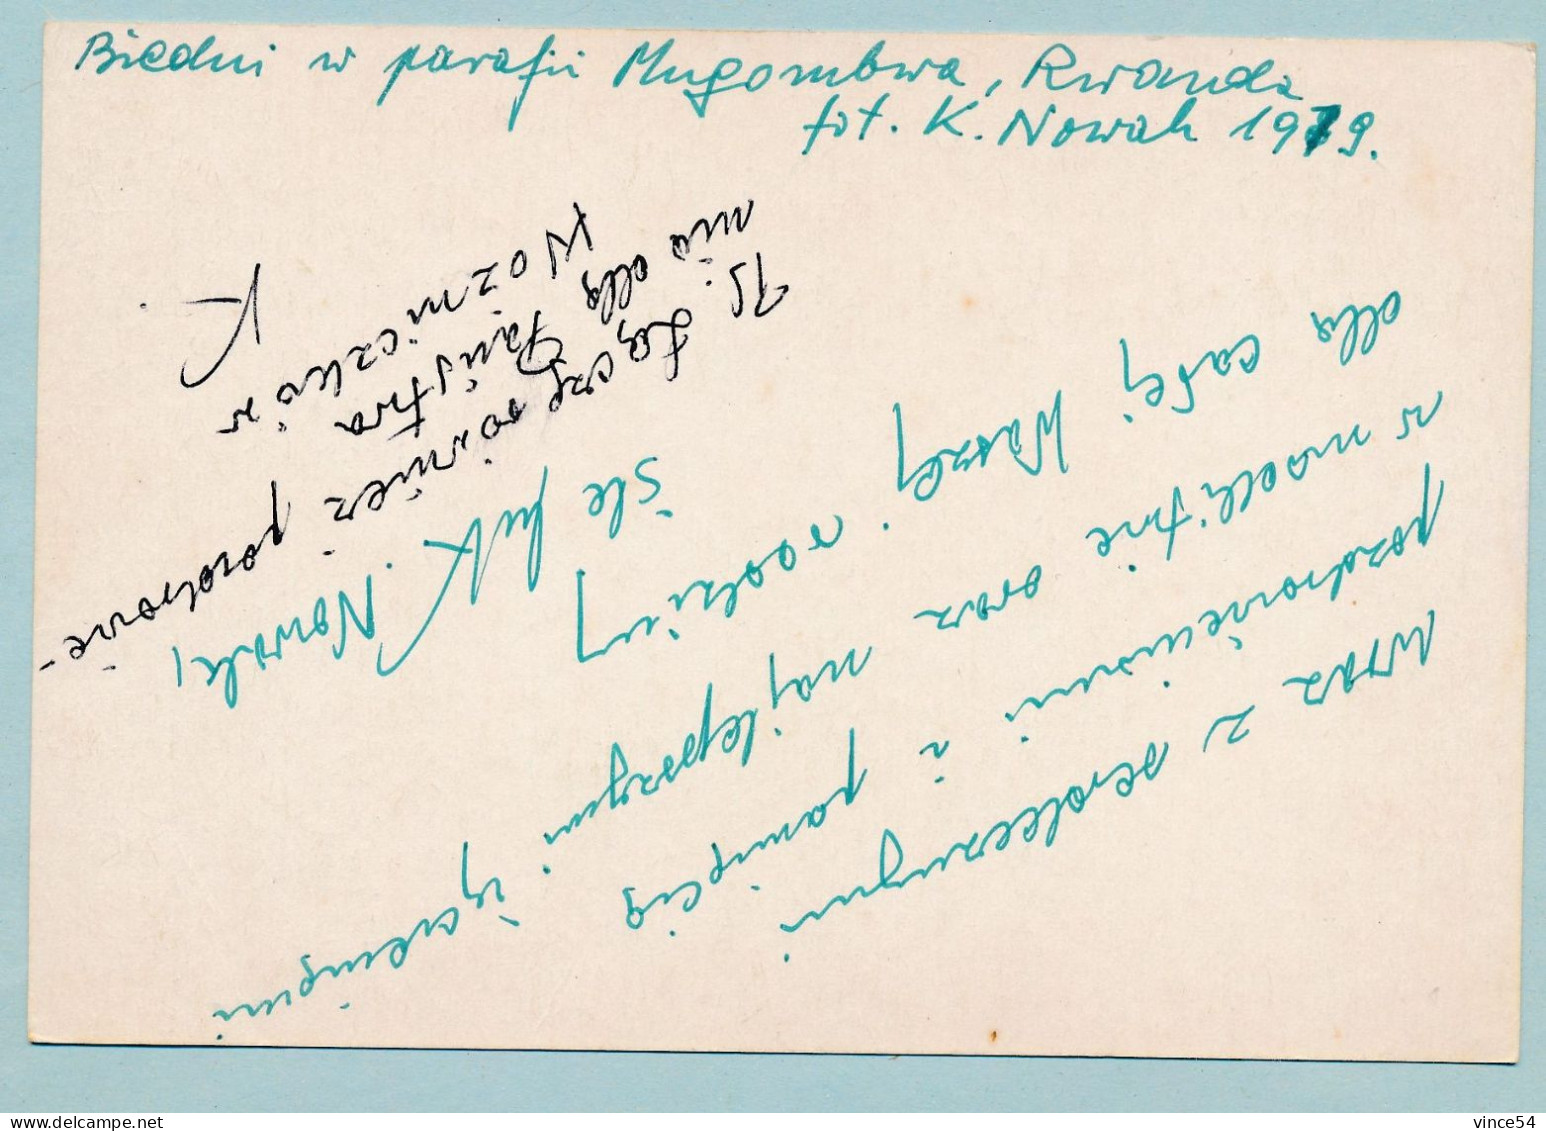 Biedni w parafii Mugombwa, Rwanda
fot. K. Nowak 1979.
Wraz z serdecznymi
pozdrowieniami i pamięcią
w modlitwie oraz najlepszymi życzeniami
dla całej Waszej rodziny
śle ks. K. Nowak,
PS. Łączę również pozdrowie-
nia dla Państwa
Woźniczków
K
vince54